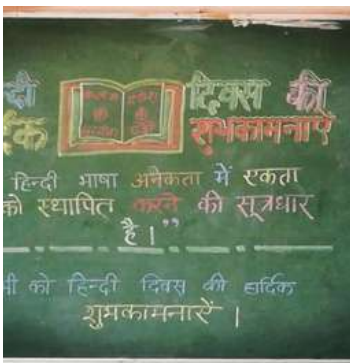 दी दिवस की
र्दिक शुभकामनाएं
हिन्दी भाषा अनेकता में एकता
को स्थापित करने की सूत्रधार
है।"
भी को हिन्दी दिवस की हार्दिक
शुभकामनाऐं ।